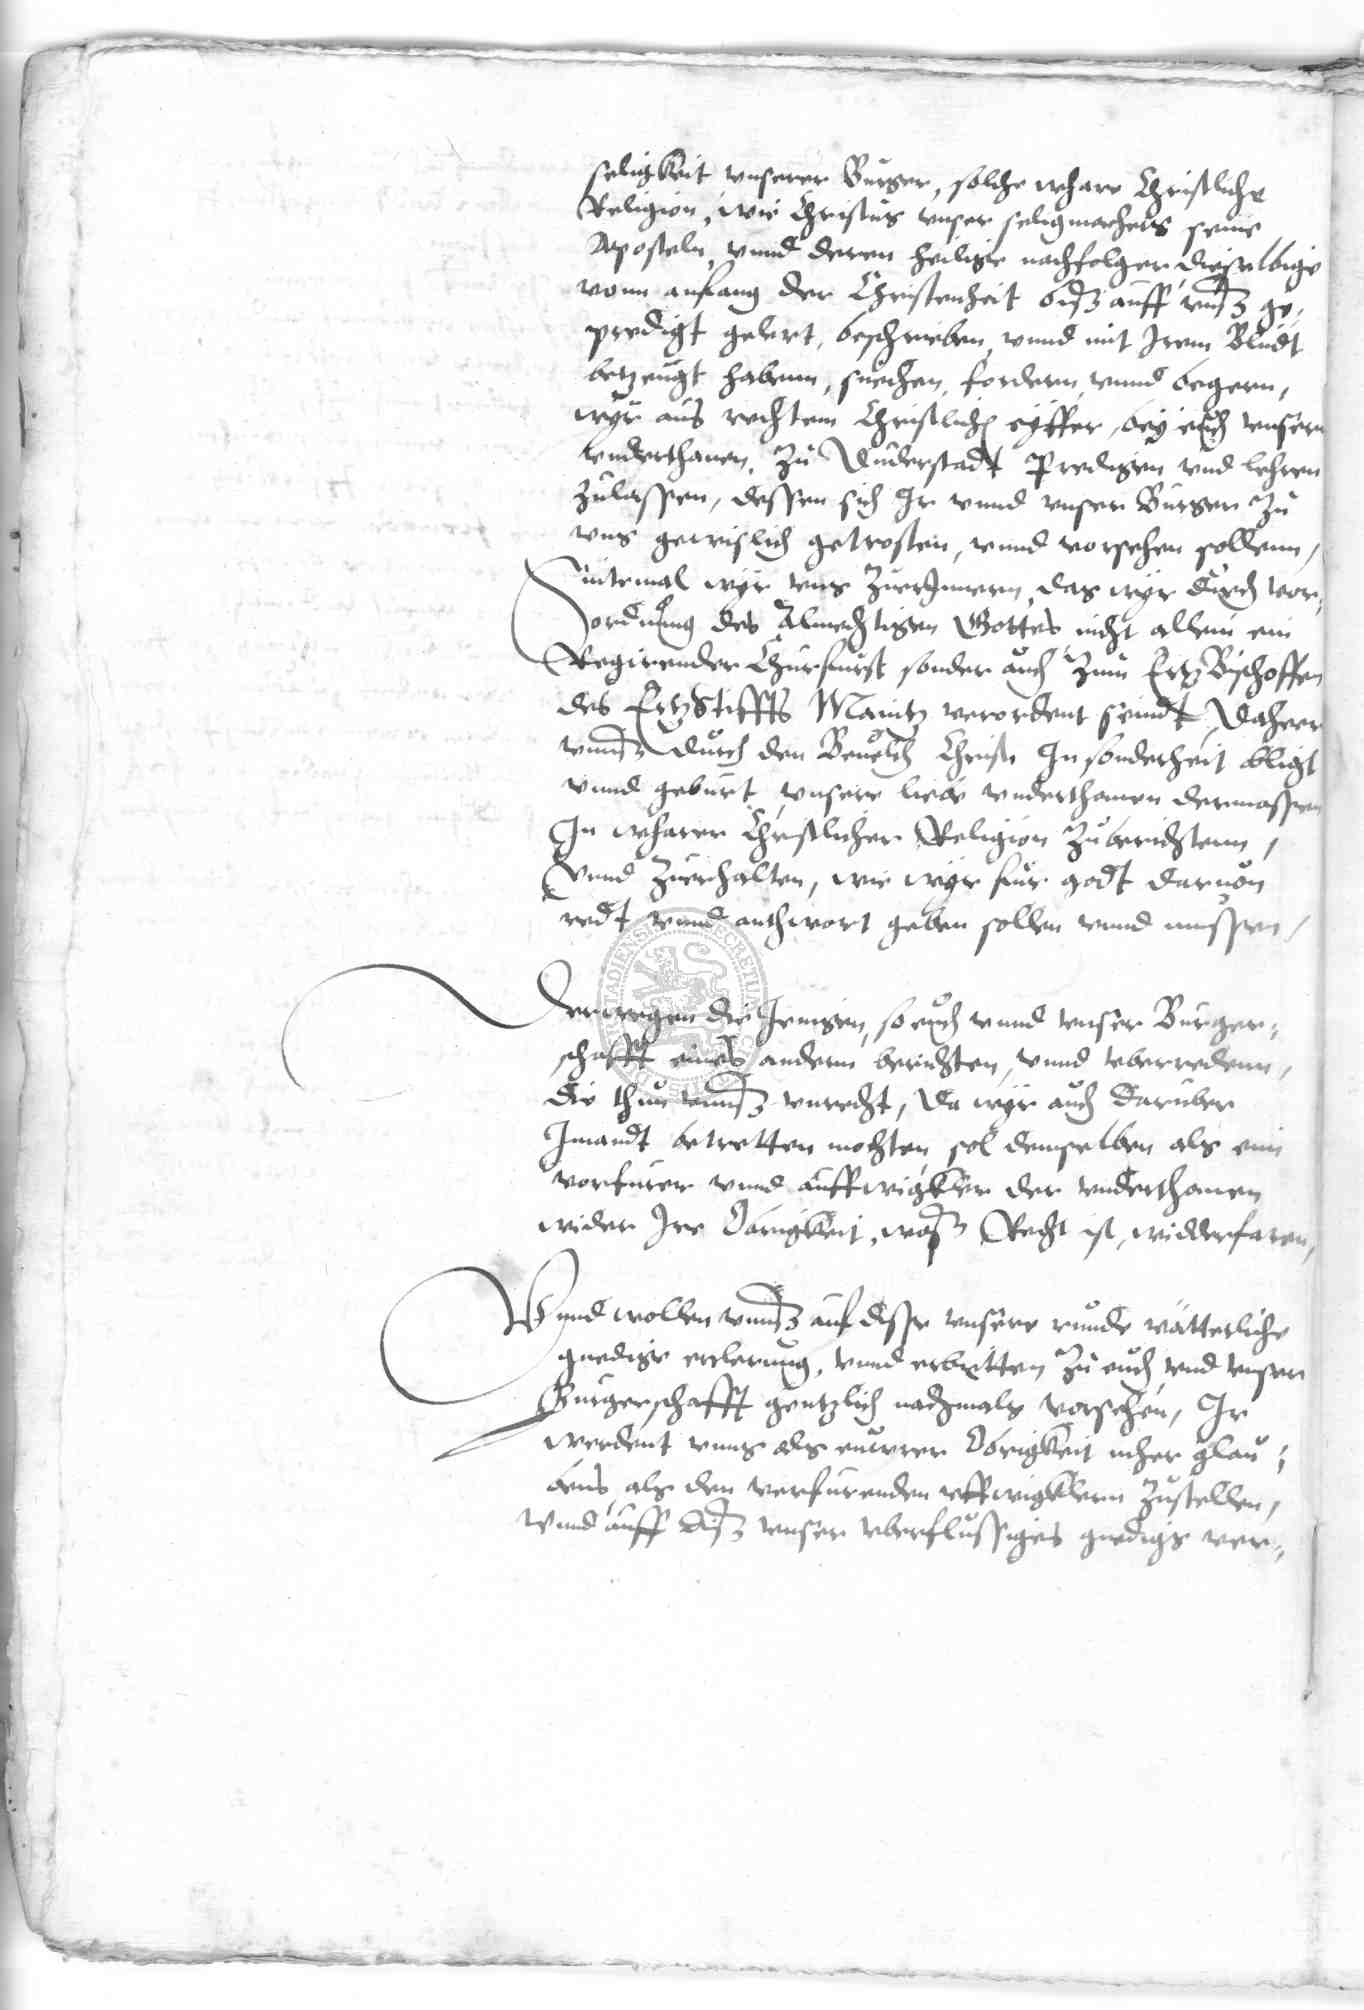 seligkeit vnserer Burger, solche whare Christliche
Religion, wie Christus vnser seligmachers seine
Aposteln, vnnd deren heilige nachfolger dieselbige
vonn anfang der Christenheit biß auff vnß ge,
predigt gelert, beschrieben, vnnd mit Irem Bludt
betzeugt habenn, suechen, fordern, vnnd begern,
wyr aus rechtem Christlich eyffer, bey euch vnsern
vnderthanen, zu Duderstadt Predigen vnd lehren
zulassen, dessen sich Ir vnnd vnser Burger zu
vns gewislich getrosten, vnnd vorsehen sollenn,
Sintemal wyr vns zuerInnern, das wyr durch vor,
ordnung des Almechtigen Gottes nicht allein ein
Regirender Churfurst sonder auch zum Ertz Bischoffen
des ErtzStiffts Maintz verordent seindt, Daheer
vnnß durch den Beuelch Christi In sonderheit obligt
vnnd geburt, vnsere liebe vnderthanen dermassen
In wharer Christlicher Religion zuberichtenn,
Vnnd zuerhalten, wie wyr fur godt daruon
redt vnnd anthwort geben sollen vnnd mussen,
Derwegen die Jenigen, so euch vnnd vnser Burger,
schafft eines andern berichten, vnnd vberredenn,
die thun vnnß vnrecht, Da wyr auch daruber
Imandt betretten mochten, sol demselben als ein
vorfurer vnnd auffwigkler der vnderthanen
wider Ire Obrigkeit, waß Recht ist, widderfaren,
Vnnd wollen vnnß auf disse vnsere runde vatterliche
gnedige erclerung, vnnd erbietten zu euch vnd vnser
Burgerschafft gentzlich nachmals vorsehen, Ir
werdent vnns als euwrer Obrigkeit meher glau,
bens, als den verfurenden vffwigklern zustellen,
Vnnd auff diß vnser vberflussiges gnedigs ver,